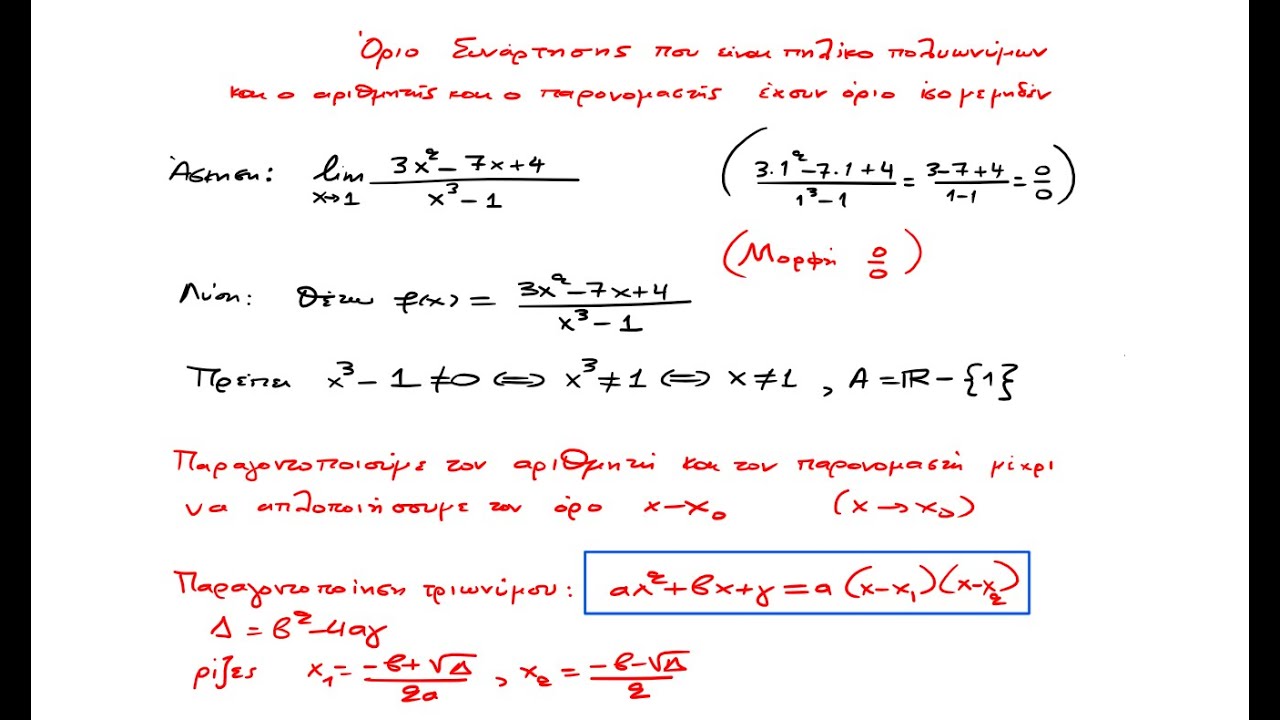 Όριο Συνάρτησης που είναι πηλίκο πολυωνύμων
και ο αριθμητής και ο παρονομαστής έχουν όριο ίσο με μηδέν
Άσκηση: lim x→1 (3x² - 7x + 4)/(x³ - 1) ((3·1² - 7·1 + 4)/(1³ - 1) = (3 - 7 + 4)/(1 - 1) = 0/0)
(Μορφή 0/0)
Λύση: Θέτω f(x) = (3x² - 7x + 4)/(x³ - 1)
Πρέπει x³ - 1 ≠ 0 ⇔ x³ ≠ 1 ⇔ x ≠ 1 , A = ℝ - {1}
Παραγοντοποιούμε τον αριθμητή και τον παρονομαστή μέχρι
να απλοποιήσουμε τον όρο x - x₀ (x → x₀)
Παραγοντοποίηση τριωνύμου: αx² + βx + γ = α(x - x₁)(x - x₂)
Δ = β² - 4αγ
ρίζες x₁ = (-β + √Δ)/2α , x₂ = (-β - √Δ)/2